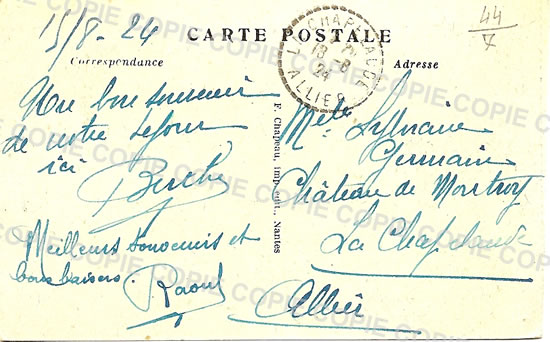 15/8-24
CARTE POSTALE
44
7
Correspondance
Adresse
CHAPELAUDE
18-8
24
ALLIER
Un bon souvenir
de notre séjour
ici
Berthe
Meilleurs souvenirs et
bons baisers.
Raoul
F. Chapeau, imp.-édit., Nantes
Melle Sylvaine
Germaine
Château de Montroy
La Chapelaude
Allier
COPIE COPIE COPIE COPIE